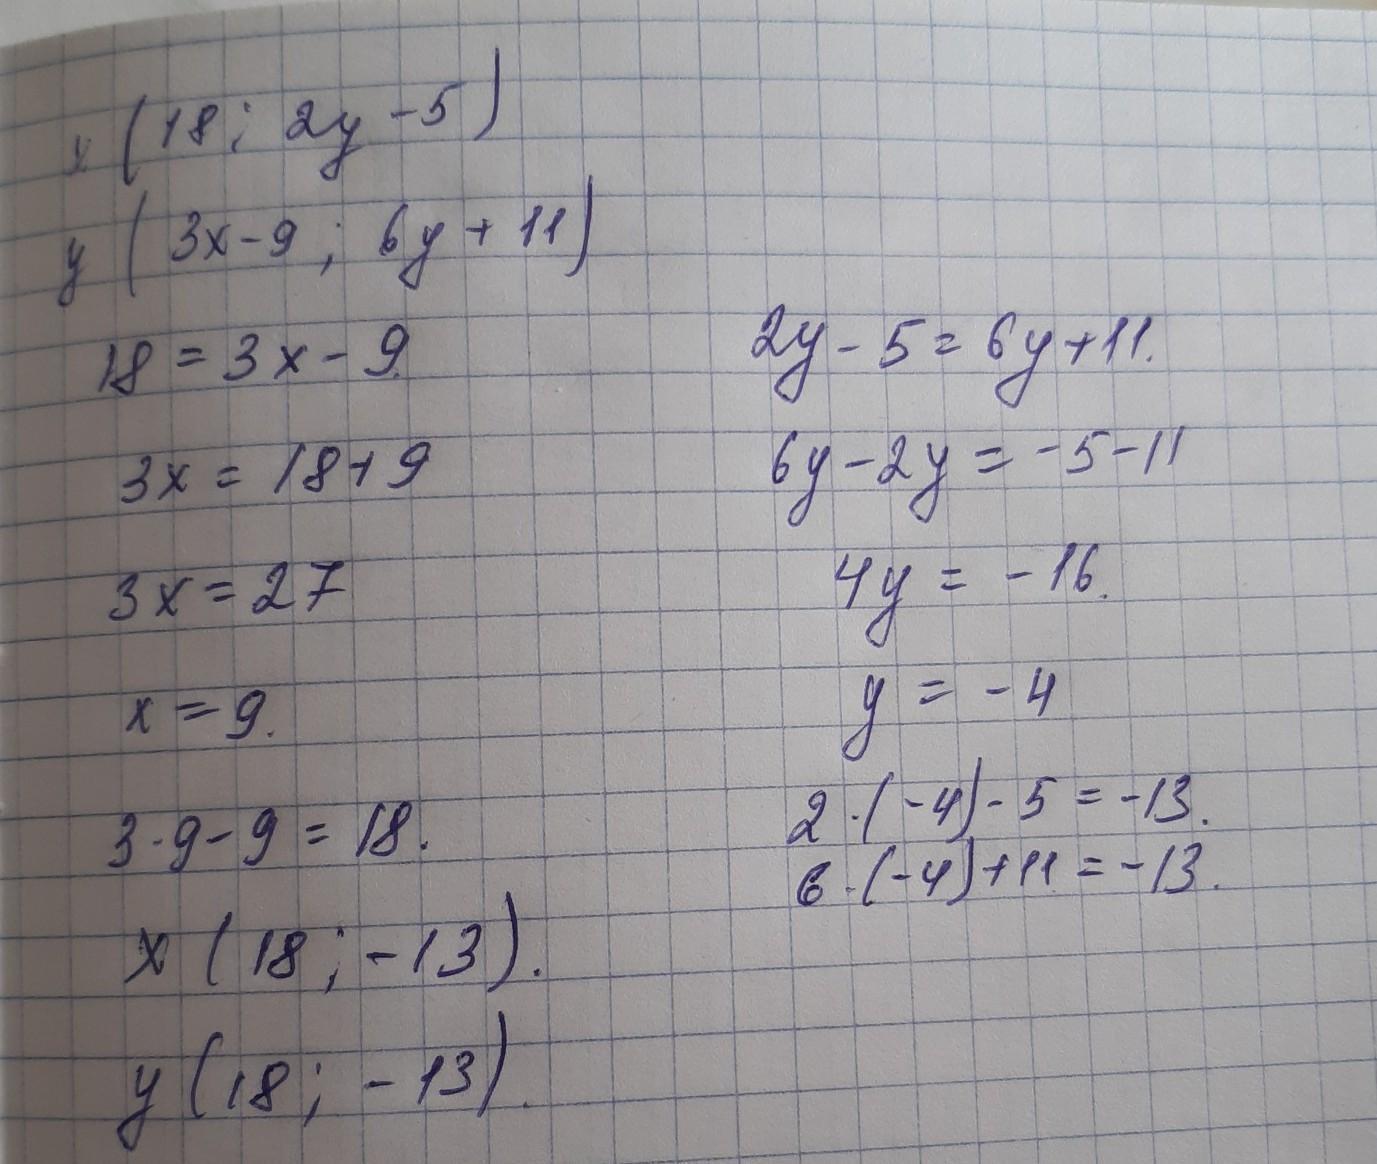 x (18; 2y - 5)
y (3x - 9; 6y + 11)
18 = 3x - 9.
3x = 18 + 9
3x = 27
x = 9.
3 · 9 - 9 = 18.
2y - 5 = 6y + 11.
6y - 2y = -5 - 11
4y = -16.
y = -4
2 · (-4) - 5 = -13.
6 · (-4) + 11 = -13.
x (18; -13).
y (18; -13).